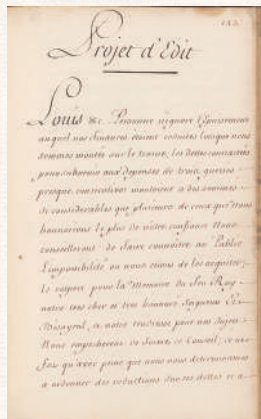 Projet d'Edit
Louis &c. Personne n'ignore l'Epuisement
auquel nos finances étoient reduites lorsque nous
sommes monté sur le trone, les dettes contractés
pour subvenir aux depenses de trois guerres
presque consecutives montoient a des sommes
si considerables que plusieurs de ceux que Nous
honnorions le plus de notre confiance Nous
conseillerent de faire connoitre au Public
l'impossibilité ou nous etions de les acquitter,
le respect pour la Memoire du feu Roy
notre tres cher et tres honnoré Seigneur et
Bisayeul, et notre tendresse pour nos Sujets
Nous empecherent de suivre ce Conseil; ce ne
fut qu'avec peine que nous nous determinames
a ordonner des reductions sur ces dettes et a